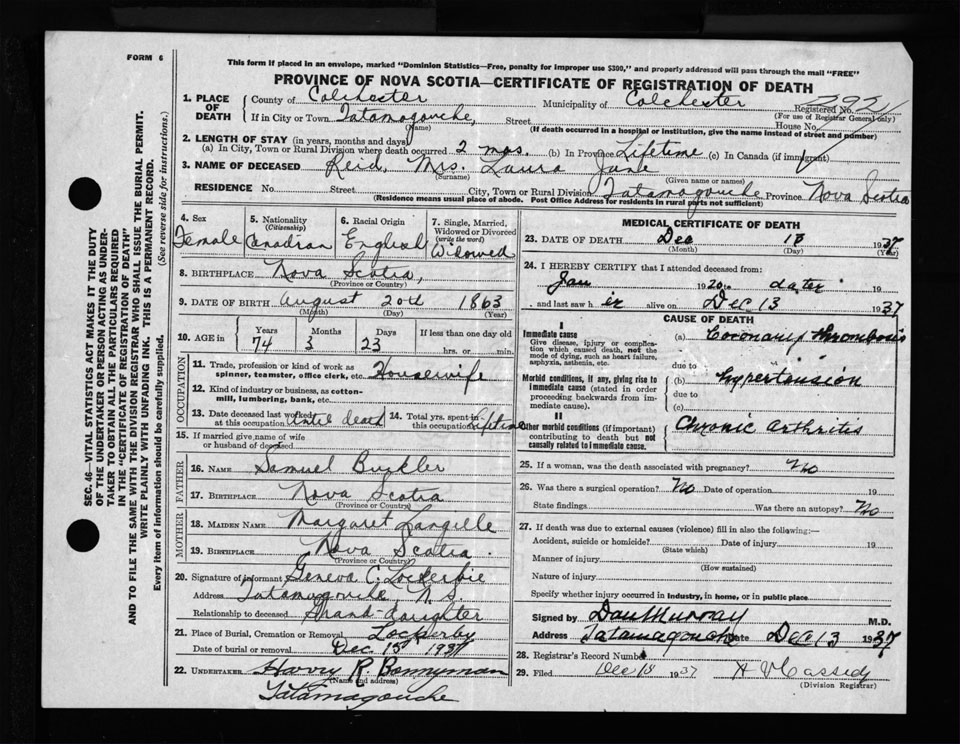 FORM 6
This form if placed in an envelope, marked "Dominion Statistics—Free, penalty for improper use $300," and properly addressed will pass through the mail "FREE"
PROVINCE OF NOVA SCOTIA—CERTIFICATE OF REGISTRATION OF DEATH
1. PLACE OF DEATH County of Colchester Municipality of Colchester Registered No.
(For use of Registrar General only)
If in City or Town Tatamagouche, Street House No.
(Name) (If death occurred in a hospital or institution, give the name instead of street and number)
2. LENGTH OF STAY (in years, months and days)
(a) In City, Town or Rural Division where death occurred 2 mos. (b) In Province Lifetime (c) In Canada (if immigrant)
3. NAME OF DECEASED Reid, Mrs. Laura Jane
(Surname) (Given name or names)
RESIDENCE No. Street City, Town or Rural Division Tatamagouche Province Nova Scotia
(Residence means usual place of abode. Post Office Address for residents in rural parts not sufficient)
4. Sex Female
5. Nationality (Citizenship) Canadian
6. Racial Origin English
7. Single, Married, Widowed or Divorced (write the word) Widowed
8. BIRTHPLACE Nova Scotia,
(Province or Country)
9. DATE OF BIRTH August 20th 1863
(Month) (Day) (Year)
10. AGE in Years Months Days If less than one day old
74 3 23 hrs. or min.
OCCUPATION
11. Trade, profession or kind of work as
spinner, teamster, office clerk, etc. Housewife
12. Kind of industry or business, as cotton-
mill, lumbering, bank, etc.
13. Date deceased last worked at this occupation Until death 14. Total yrs. spent in this occupation Lifetime
15. If married give name of wife
or husband of deceased
FATHER
16. NAME Samuel Buckler
17. BIRTHPLACE Nova Scotia
(Province or Country)
MOTHER
18. MAIDEN NAME Margaret Langille
19. BIRTHPLACE Nova Scotia.
(Province or Country)
20. Signature of informant Geneva C. Lockerbie
Address Tatamagouche N.S.
Relationship to deceased Grand-daughter
21. Place of Burial, Cremation or Removal Lockerby
Date of burial or removal Dec. 15th 1937
22. UNDERTAKER Harry R. Bonnyman
(Name and address)
Tatamagouche
MEDICAL CERTIFICATE OF DEATH
23. DATE OF DEATH Dec 1937
(Month) (Day) (Year)
24. I HEREBY CERTIFY that I attended deceased from
Jan 1920
and last saw h er alive on Dec 13 1937
CAUSE OF DEATH
I
Immediate cause
Give disease, injury or complica-
tion which caused death, not the
mode of dying, such as heart failure,
asphyxia, asthenia, etc.
(a) Coronary thrombosis
due to
Morbid conditions, if any, giving rise to
immediate cause (stated in order
proceeding backwards from im-
mediate cause).
(b) hypertension
due to
(c)
II
Other morbid conditions (if important)
contributing to death but not
causally related to immediate cause.
Chronic arthritis
25. If a woman, was the death associated with pregnancy? No
26. Was there a surgical operation? No Date of operation 19
State findings Was there an autopsy? No
27. If death was due to external causes (violence) fill in also the following:—
Accident, suicide or homicide? Date of injury 19
(State which)
Manner of injury
(How sustained)
Nature of injury
Specify whether injury occurred in Industry, in home, or in public place
Signed by Dan Murray M.D.
Address Tatamagouche Date Dec 13 1937
28. Registrar's Record Number
29. Filed Dec 1937 Cassidy
(Division Registrar)
SEC. 46—VITAL STATISTICS ACT MAKES IT THE DUTY
OF THE UNDERTAKER OR PERSON ACTING AS UNDER-
TAKER TO OBTAIN ALL THE PARTICULARS REQUIRED
IN THE "CERTIFICATE OF REGISTRATION OF DEATH"
AND TO FILE THE SAME WITH THE DIVISION REGISTRAR WHO SHALL ISSUE THE BURIAL PERMIT.
WRITE PLAINLY WITH UNFADING INK. THIS IS A PERMANENT RECORD.
Every item of information should be carefully supplied. (See reverse side for instructions.)